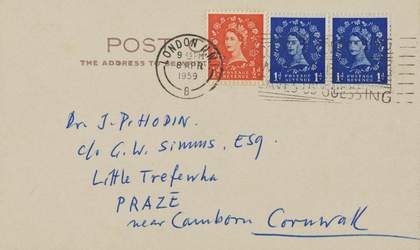 POST
THE ADDRESS TO BE
LONDON N.W.
8 APR
1959
8
POSTAGE REVENUE
½ᵈ
POSTAGE REVENUE
1ᵈ
POSTAGE REVENUE
1ᵈ
SAVES US GUESSING
Dr. J. P. HODIN.
c/o G. W. Simms, Esq.
Little Trefewha
PRAZE
near Camborn Cornwall